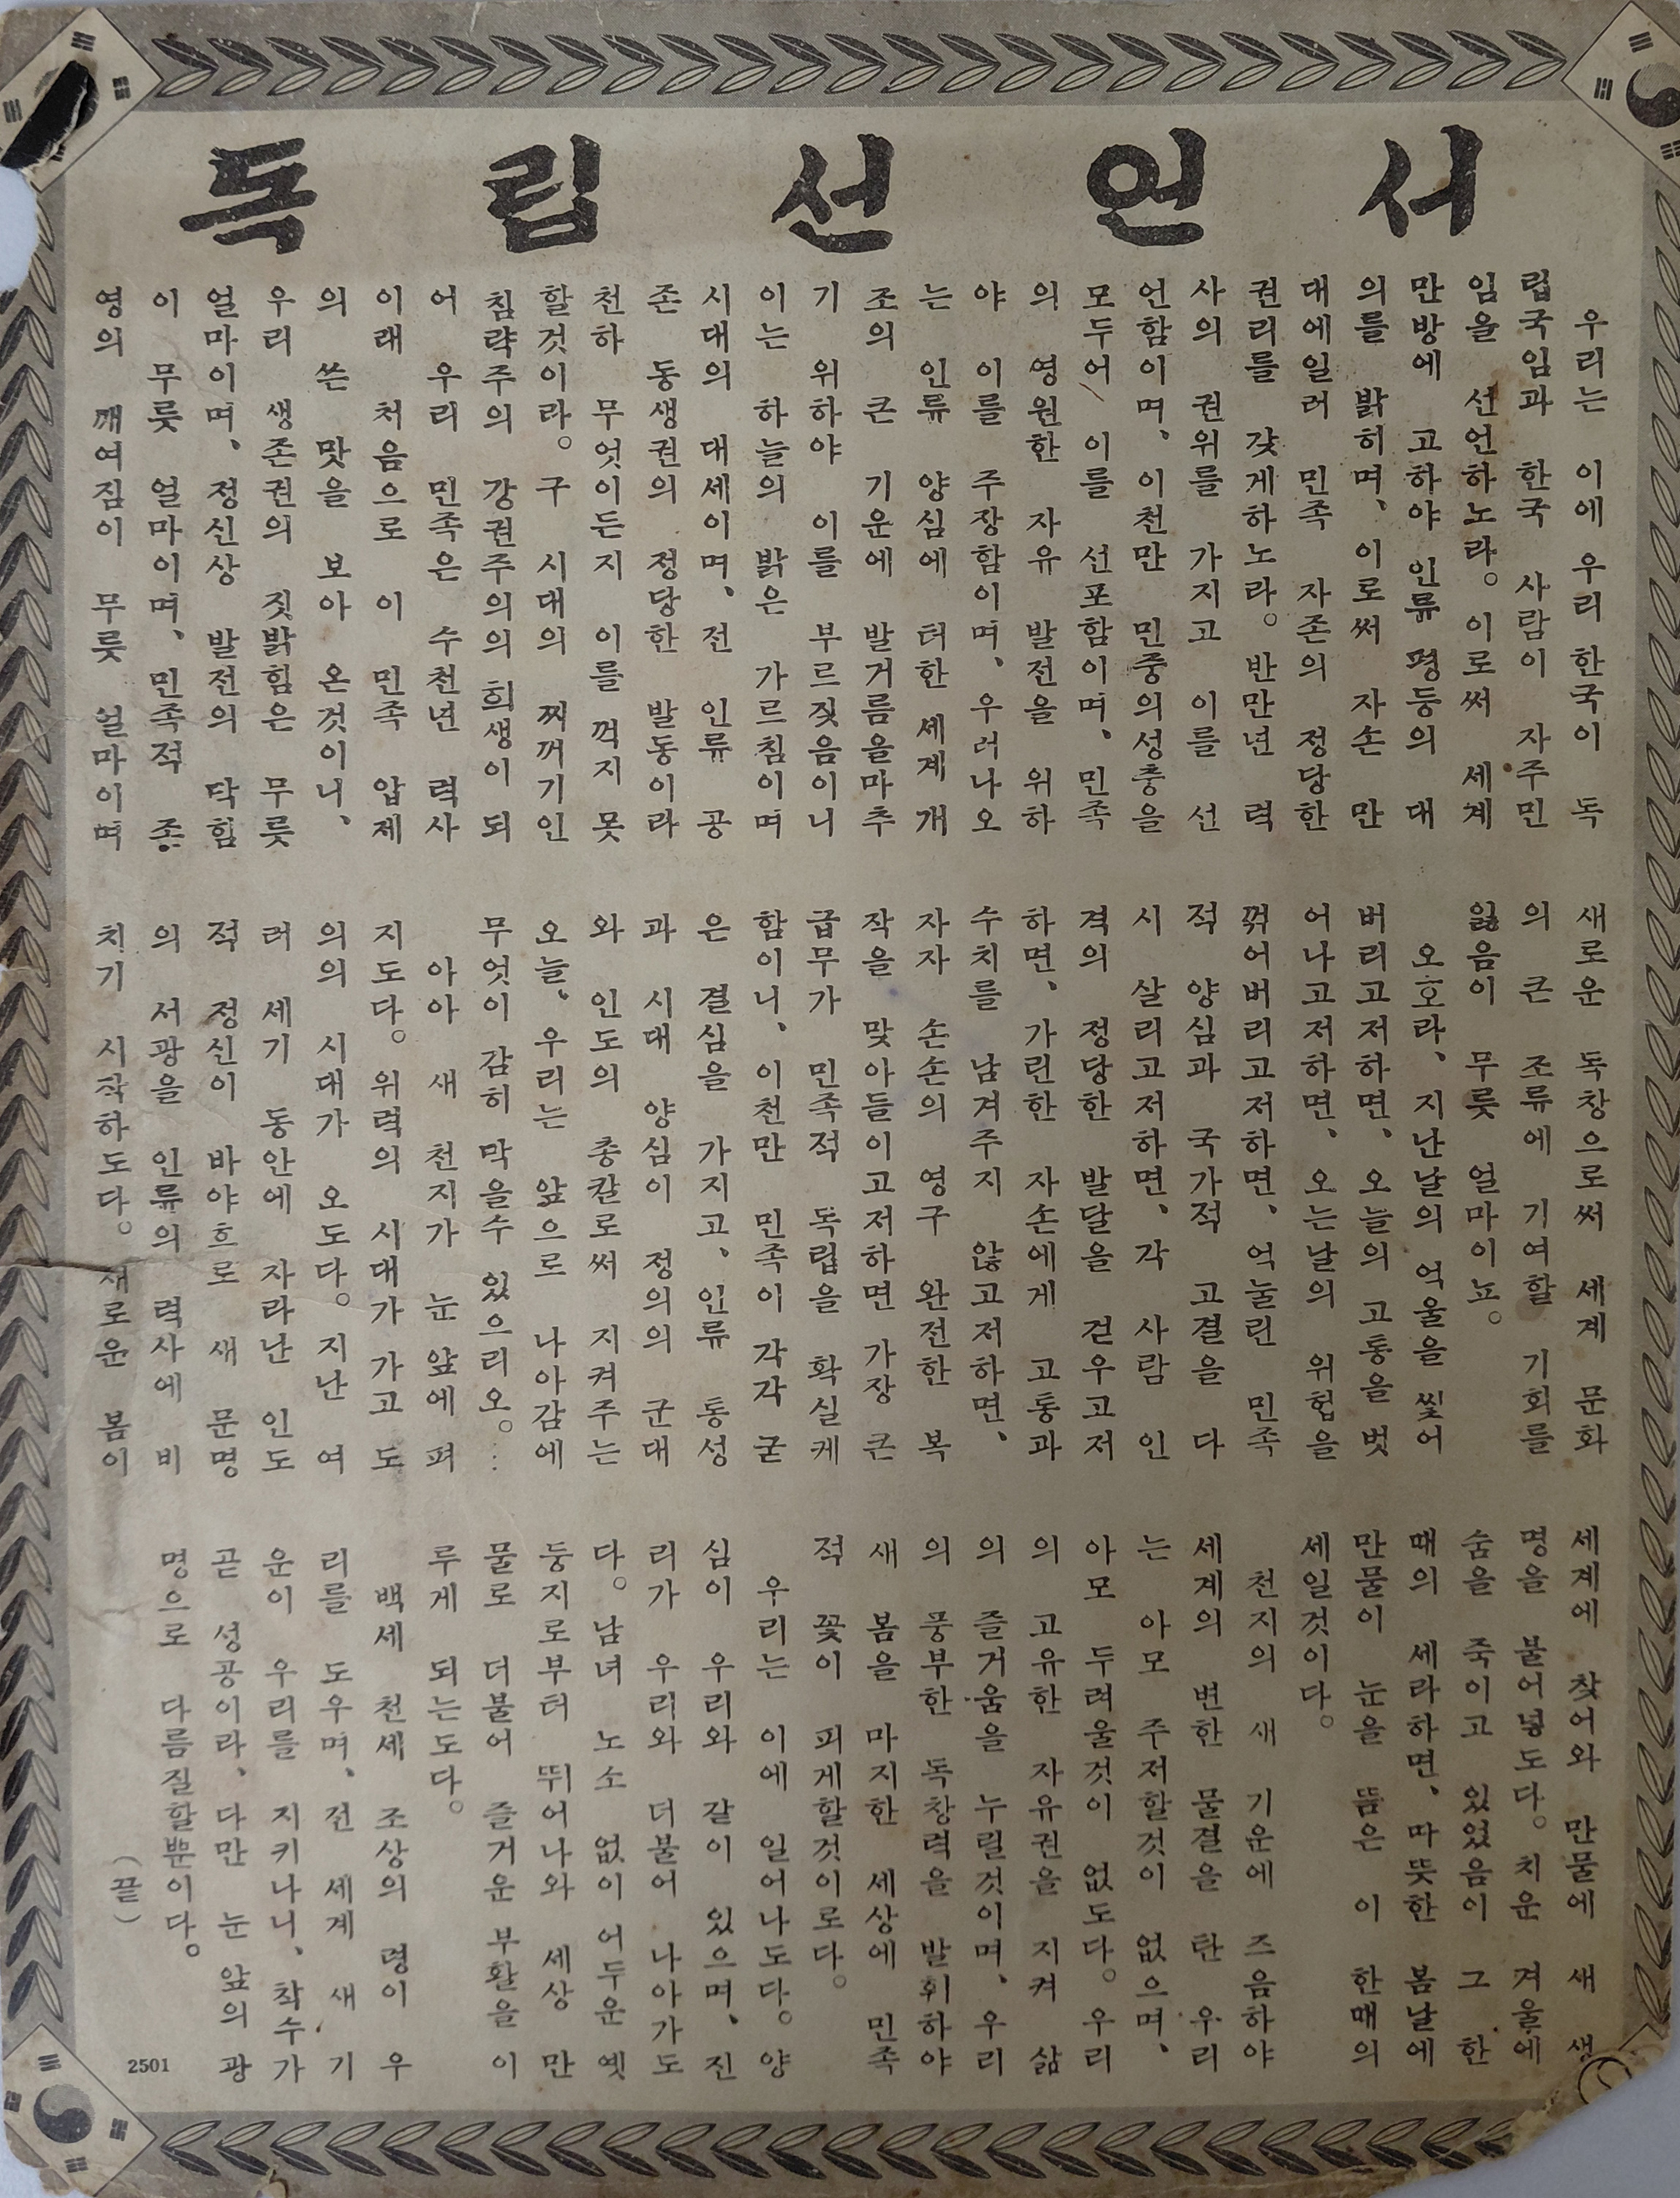 독립선언서
우리는 이에 우리 한국이 독
립국임과 한국 사람이 자주민
임을 선언하노라。이로써 세계
만방에 고하야 인류 평등의 대
의를 밝히며、이로써 자손 만
대에일러 민족 자존의 정당한
권리를 갖게하노라。반만년 력
사의 권위를 가지고 이를 선
언함이며、이천만 민중의성충을
모두어 이를 선포함이며、민족
의 영원한 자유 발전을 위하
야 이를 주장함이며、우러나오
는 인류 양심에 터한 세계 개
조의 큰 기운에 발거름을마추
기 위하야 이를 부르짖음이니
이는 하늘의 밝은 가르침이며
시대의 대세이며、전 인류 공
존 동생권의 정당한 발동이라
천하 무엇이든지 이를 꺽지 못
할것이라。구 시대의 찌꺼기인
침략주의 강권주의의 희생이 되
어 우리 민족은 수천년 력사
이래 처음으로 이 민족 압제
의 쓴 맛을 보아 온것이니、
우리 생존권의 짓밝힘은 무릇
얼마이며、정신상 발전의 닥힘
이 무릇 얼마이며、민족적 존
영의 깨여짐이 무릇 얼마이며
새로운 독창으로써 세계 문화
의 큰 조류에 기여할 기회를
잃음이 무릇 얼마이뇨。
오호라、지난날의 억울을 씿어
버리고저하면、오늘의 고통을 벗
어나고저하면、오는날의 위험을
꺾어버리고저하면、억눌린 민족
적 양심과 국가적 고결을 다
시 살리고저하면、각 사람 인
격의 정당한 발달을 걷우고저
하면、가린한 자손에게 고통과
수치를 남겨주지 않고저하면、
자자 손손의 영구 완전한 복
작을 맞아들이고저하면 가장 큰
급무가 민족적 독립을 확실케
함이니、이천만 민족이 각각 굳
은 결심을 가지고、인류 통성
과 시대 양심이 정의의 군대
와 인도의 총칼로써 지켜주는
오늘、우리는 앞으르 나아감에
무엇이 감히 막을수 있으리오。…
아아 새 천지가 눈 앞에 펴
지도다。위력의 시대가 가고 도
의의 시대가 오도다。지난 여
러 세기 동안에 자라난 인도
적 정신이 바야흐로 새 문명
의 서광을 인류의 력사에 비
치기 시작하도다。새로운 봄이
세계에 찾어와 만물에 새 생
명을 불어넣도다。치운 겨울에
숨을 죽이고 있었음이 그 한
때의 세라하면、따뜻한 봄날에
만물이 눈을 뜸은 이 한때의
세일것이다。
천지의 새 기운에 즈음하야
세계의 변한 물결을 탄 우리
는 아모 주저할것이 없으며、
아모 두려울것이 없도다。우리
의 고유한 자유권을 지켜 삶
의 즐거움을 누릴것이며、우리
의 풍부한 독창력을 발휘하야
새 봄을 마지한 세상에 민족
적 꽃이 피게할것이로다。
우리는 이에 일어나도다。양
심이 우리와 같이 있으며、진
리가 우리와 더불어 나아가도
다。남녀 노소 없이 어두운 옛
둥지로부터 뛰어나와 세상 만
물로 더불어 즐거운 부활을 이
루게 되는도다。
백세 천세 조상의 령이 우
리를 도우며、전 세계 새 기
운이 우리를 지키나니、착수가
곧 성공이라、다만 눈 앞의 광
명으로 다름질할뿐이다。
(끝)
2501